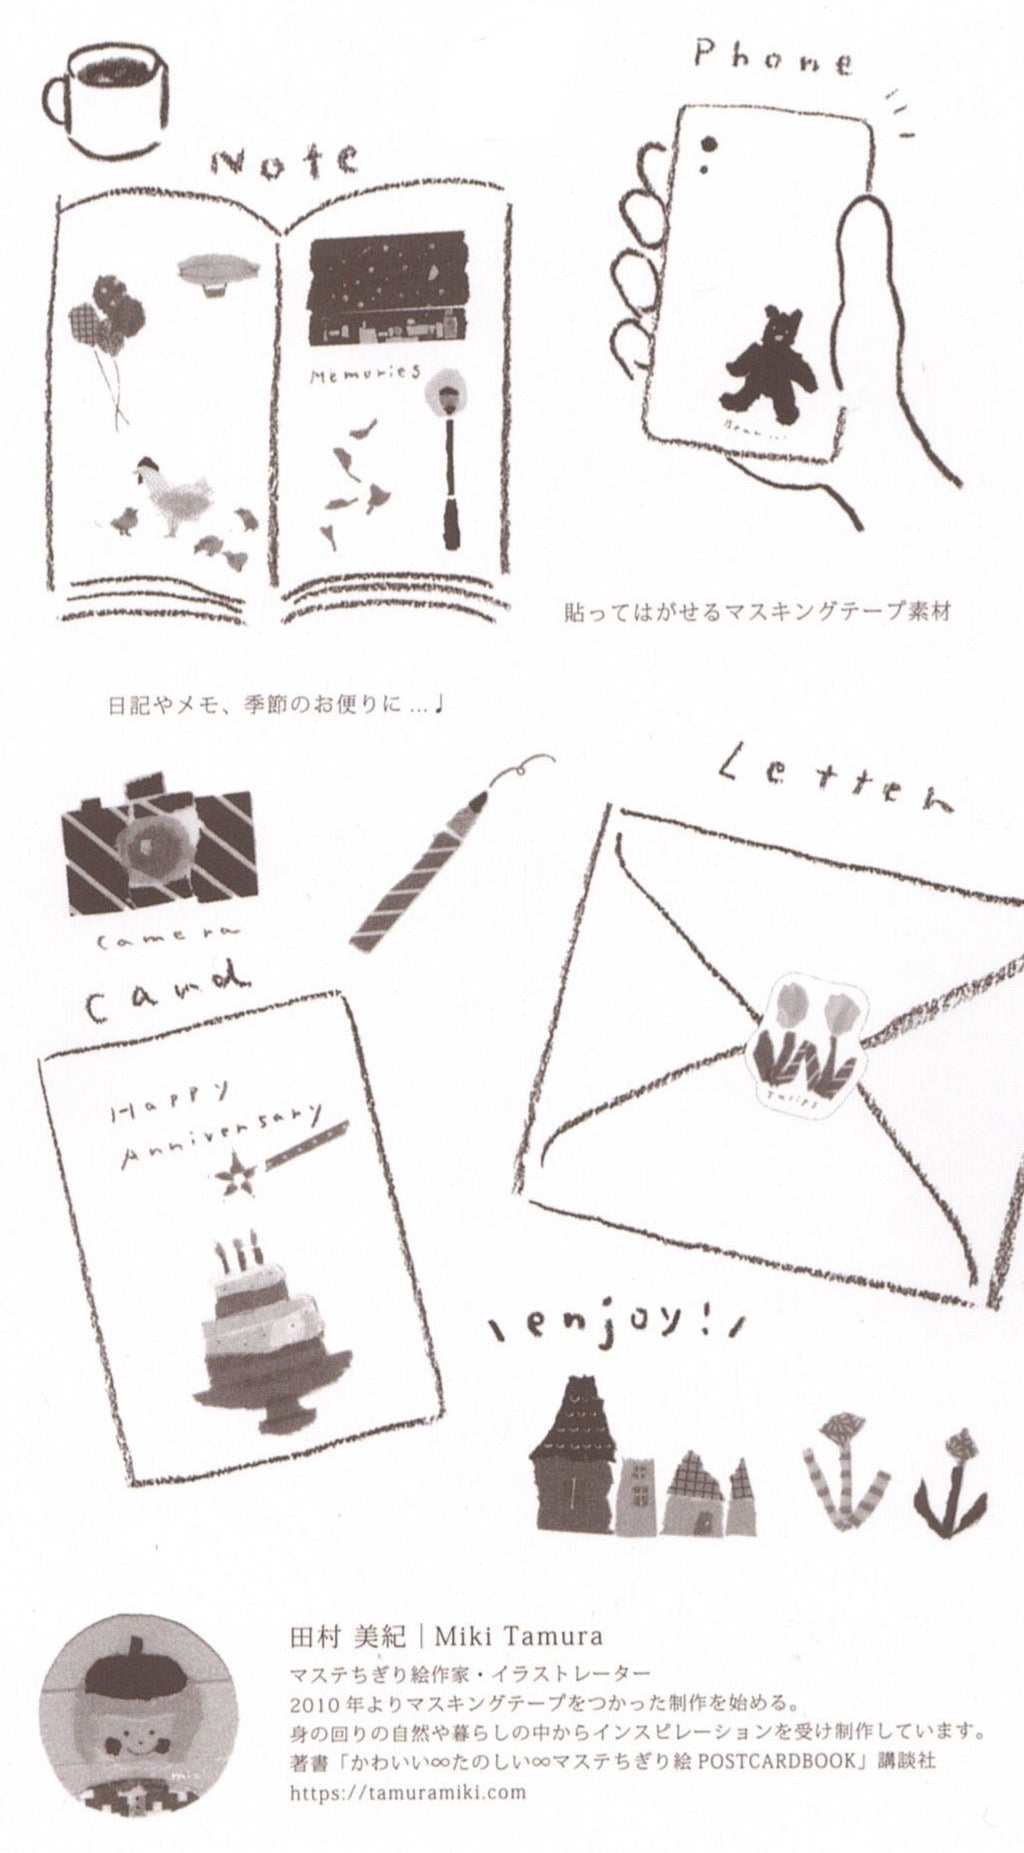 Phone
Note
Memories
Bear...
貼ってはがせるマスキングテープ素材
日記やメモ、季節のお便りに...♩
Letter
camera
card
Happy
Anniversary
Tulips
\enjoy!/
田村 美紀｜Miki Tamura
マステちぎり絵作家・イラストレーター
2010年よりマスキングテープをつかった制作を始める。
身の回りの自然や暮らしの中からインスピレーションを受け制作しています。
著書「かわいい∞たのしい∞マステちぎり絵POSTCARDBOOK」講談社
https://tamuramiki.com